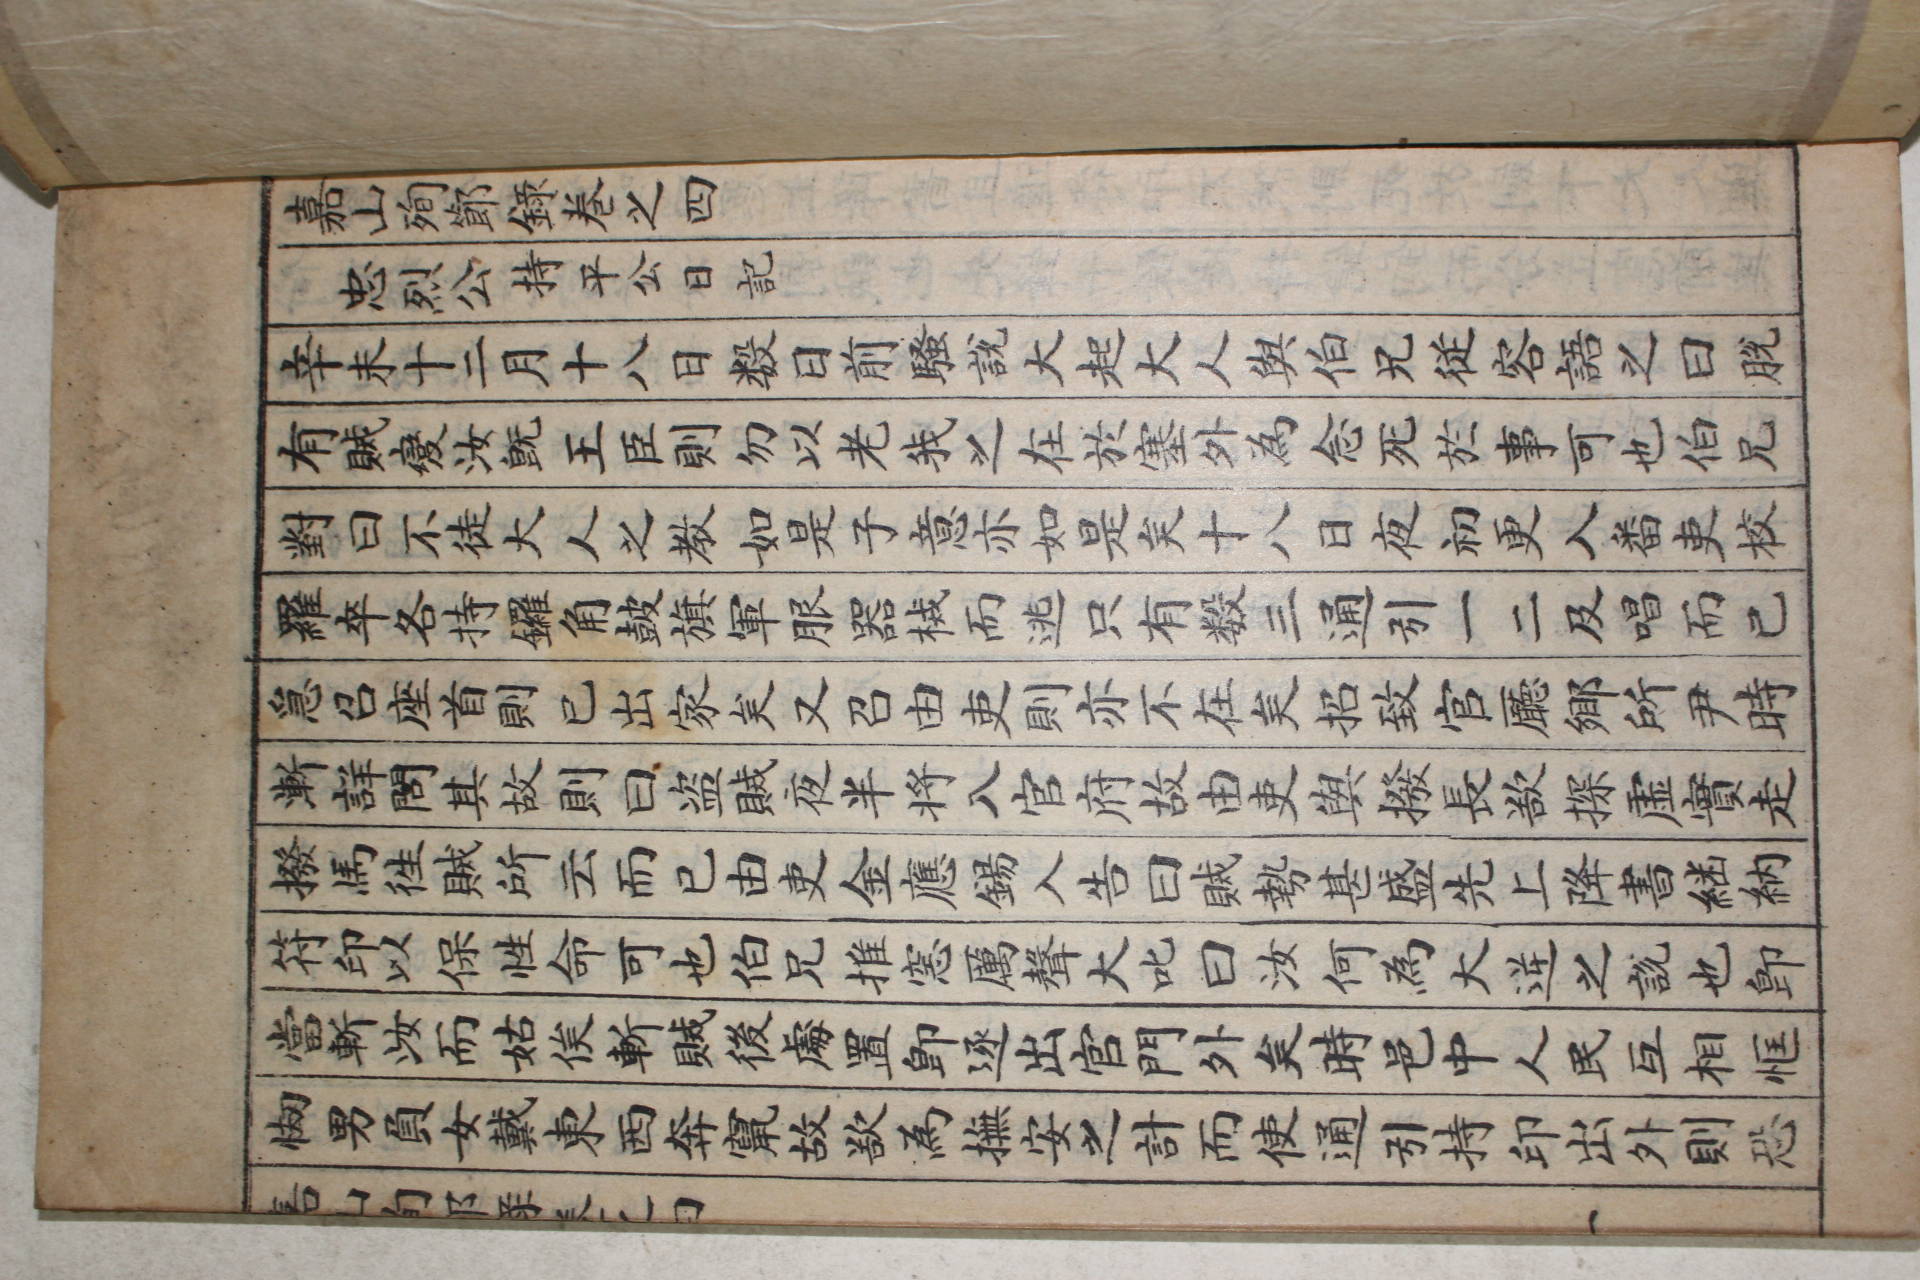 嘉山殉節錄卷之四
忠烈公持平公日記
辛未十二月十八日数日前騷說大起大人與伯兄從容語之曰脫
有賊變汝旣王臣則勿以老我之在於塞外為念死於事可也伯兄
對曰不徒大人之敎如是子意亦如是矣十八日夜初更入番吏校
羅卒各持鑼角鼓旗軍服器械而逃只有数三通引一二及唱而已
急召座首則已出家矣又召由吏則亦不在矣招致官廳鄉所尹時
漸詳問其故則曰盜賊夜半將入官府故由吏與撥長欲探虛實走
撥馬徃賊所云而已由吏金應錫入告曰賊勢甚盛先上降書継納
符印以保性命可也伯兄推窓厲聲大叱曰汝何為大逆之說也卽
當斬汝而姑俟斬賊後處置卽逐出官門外矣時邑中人民互相恇
㤼男負女戴東西奔竄故欲為撫安之計而使通引持印出外則恐
嘉山殉節錄卷之四 一